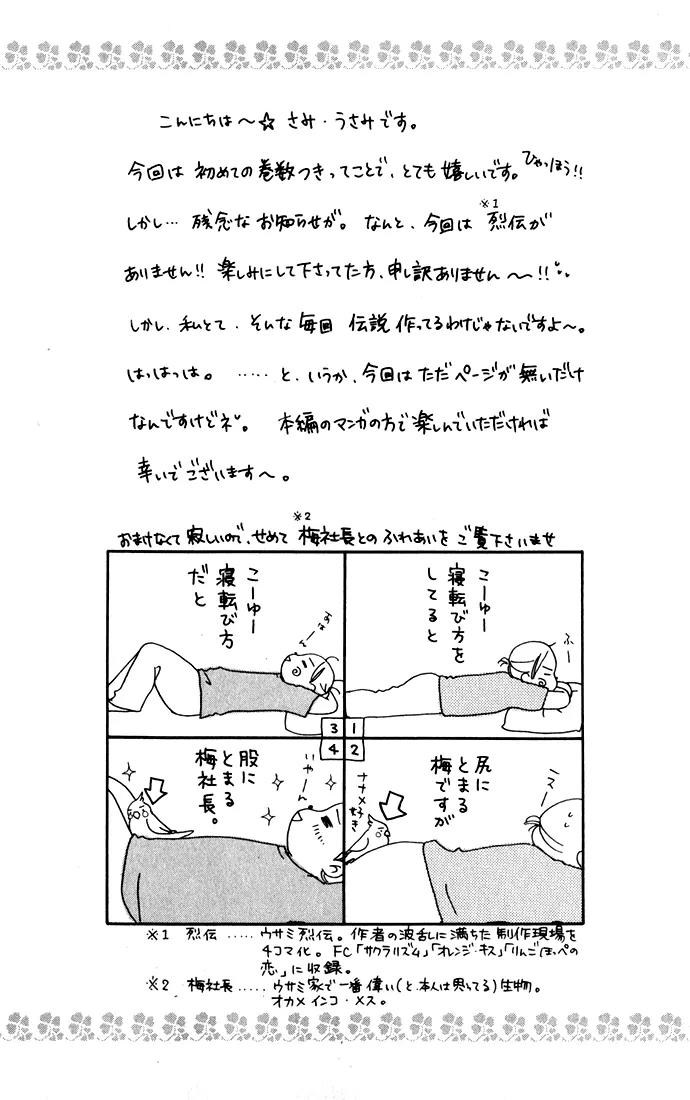 こんにちは〜☆ さみ・うさみです。
今回は 初めての巻数つきってことで、とても嬉しいです。ひゃっほう!!
※1
しかし… 残念なお知らせが。なんと、今回は 烈伝が
ありません!! 楽しみにして下さってた方、申し訳ありません〜〜!!
しかし、私とて、そんな毎回 伝説作ってるわけじゃないですよ〜。
はっはっは。 ……と、いうか、今回はただページが無いだけ
なんですけどネ。 本編のマンガの方で楽しんでいただければ
幸いでございます〜。
※2
おまけなくて寂しいので、せめて 梅社長とのふれあいを ご覧下さいませ
こーゆー
寝転び方を
してると
ふー
1
尻に
とまる
梅ですが
ナナメ好き
2
こーゆー
寝転び方
だと
3
股に
とまる
梅社長。
いやーん
4
※1 烈伝 ‥‥‥ ウサミ烈伝。作者の波乱に満ちた制作現場を
4コマ化。FC「サクラリズム」「オレンジ・キス」「りんごほっぺの
恋」に収録。
※2 梅社長 ‥‥‥ ウサミ家で一番偉い(と、本人は思ってる)生物。
オカメインコ・メス。